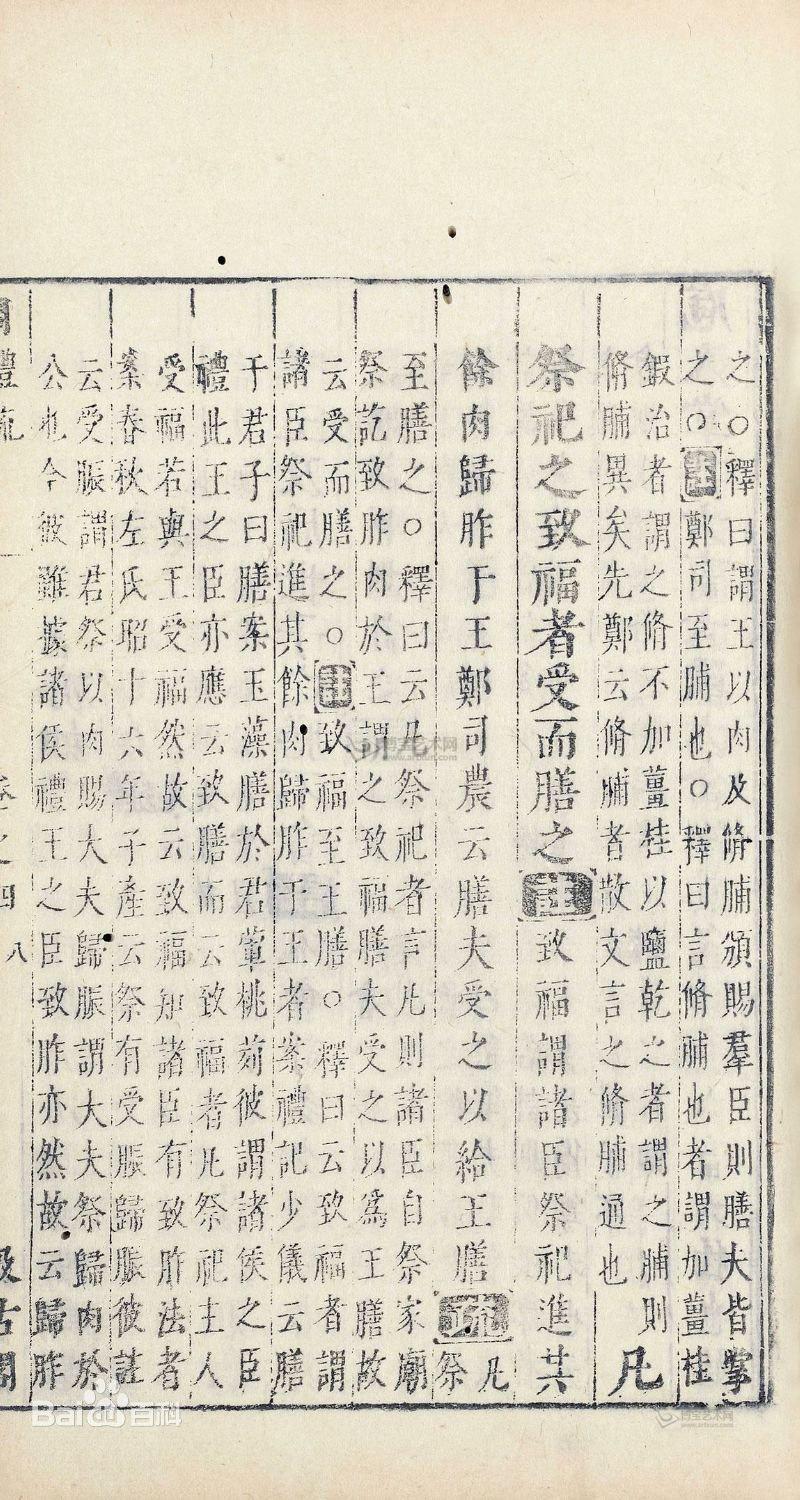 之○釋曰謂王以肉及脩脯頒賜羣臣則膳夫皆掌
之○注鄭司至脯也○釋曰言脩脯也者謂加薑桂
鍛治者謂之脩不加薑桂以鹽乾之者謂之脯則
脩脯異矣先鄭云脩脯者散文言之脩脯通也
凡
祭祀之致福者受而膳之注致福謂諸臣祭祀進其
餘肉歸胙于王鄭司農云膳夫受之以給王膳疏凡
祭
至膳之○釋曰云凡祭祀者言凡則諸臣自祭家廟
祭訖致胙肉於王謂之致福膳夫受之以爲王膳故
云受而膳之○注致福至王膳○釋曰云致福者謂
諸臣祭祀進其餘肉歸胙于王者案禮記少儀云膳
于君子曰膳案玉藻膳於君葷桃茢彼謂諸侯之臣
禮此王之臣亦應云致膳而云致福者凡祭祀主人
受福若與王受福然故云致福知諸臣有致胙法者
案春秋左氏昭十六年子產云祭有受脤歸脤彼註
云受脤謂君祭以肉賜大夫歸脤謂大夫祭歸肉於
公也今彼雖據諸侯禮王之臣致胙亦然故云歸胙
周禮疏
卷之四
八
汲古閣
Bai百科